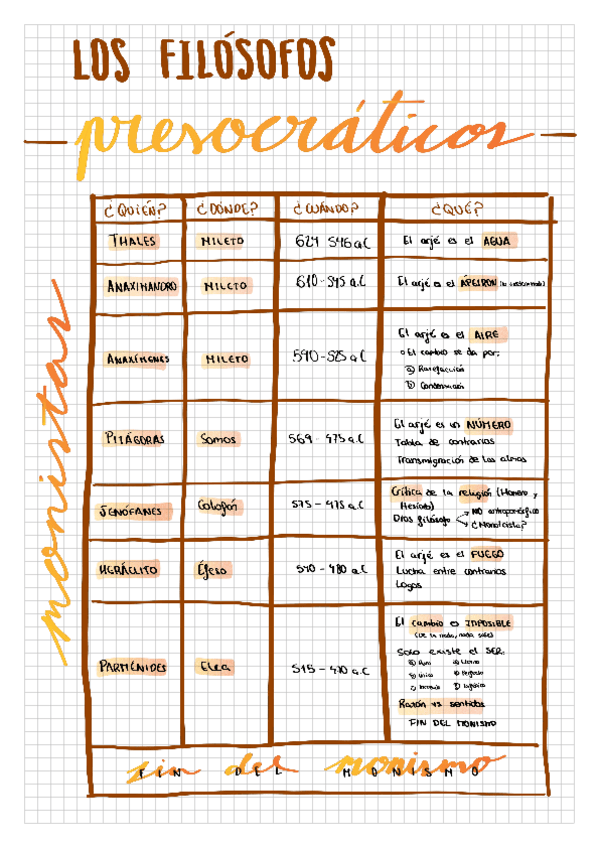 LOS FILÓSOFOS
presocráticos
monistas
¿QUIÉN? ¿DÓNDE? ¿CUÁNDO? ¿QUÉ?
THALES MILETO 624 546 a.C El arjé es el AGUA
ANAXIMANDRO MILETO 610-545 a.C El arjé es el ÁPEIRON
ANAXÍMENES MILETO 590-525 a.C El arjé es el AIRE
El cambio se da por:
Rarefacción
Condensación
PITÁGORAS Samos 569 - 475 a.C El arjé es un NÚMERO
Tabla de contrarios
Transmigración de las almas
JENÓFANES Colofón 575 - 475 a.C Crítica de la religión (Homero y
Hesíodo)
Dios filósofo NO antropomórfico
¿Monoteísta?
HERÁCLITO Éfeso 540 - 480 a.C El arjé es el FUEGO
Lucha entre contrarios
Logos
PARMÉNIDES Elea 515 - 470 a.C El cambio es IMPOSIBLE
(De la nada, nada sale)
Solo existe el SER:
Único
Razón vs sentidos
FIN DEL MONISMO
fin del monismo
FIN DEL MONISMO